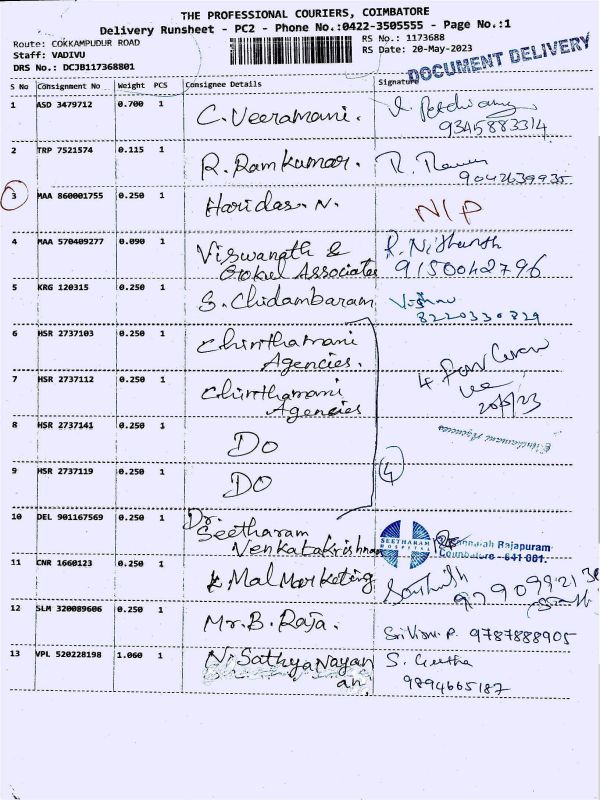 THE PROFESSIONAL COURIERS, COIMBATORE
Delivery Runsheet - PC2 - Phone No.:0422-3505555 - Page No.:1
Route: COKKAMPUDUR ROAD
RS No.: 1173688
Staff: VADIVU
RS Date: 20-May-2023
DRS No.: DCJB117368801
DOCUMENT DELIVERY
S No Consignment No Weight PCS Consignee Details Signature
1 ASD 3479712 0.700 1 C. Veeramani.
9345883314
2 TRP 7521574 0.115 1 R. Ramkumar. R.
9042639935
3 MAA 860001755 0.250 1 Haridas. N. N/P
4 MAA 570409277 0.090 1 Viswanath & R. Nishanth
Gokul Associates 9150042796
5 KRG 120315 0.250 1 S. Chidambaram Vishnu
8220330829
6 HSR 2737103 0.250 1 Chinthamani
Agencies.
7 HSR 2737112 0.250 1 Chinthamani 4
Agencies 20/5/23
8 HSR 2737141 0.250 1 Do
Chinthamani Agencies
9 HSR 2737119 0.250 1 Do 4
10 DEL 901167569 0.250 1 Dr. Seetharam
Venkatakrishnan
SEETHARAM
HOSPITAL
Rajapuram
Coimbatore - 641 001.
11 CNR 1660123 0.250 1 K Mal Marketing
12 SLM 320089606 0.250 1 Mr. B. Raja. P. 9787888905
13 VPL 520228198 1.060 1 N. Sathya Narayan S. Geetha
an, 9894665187